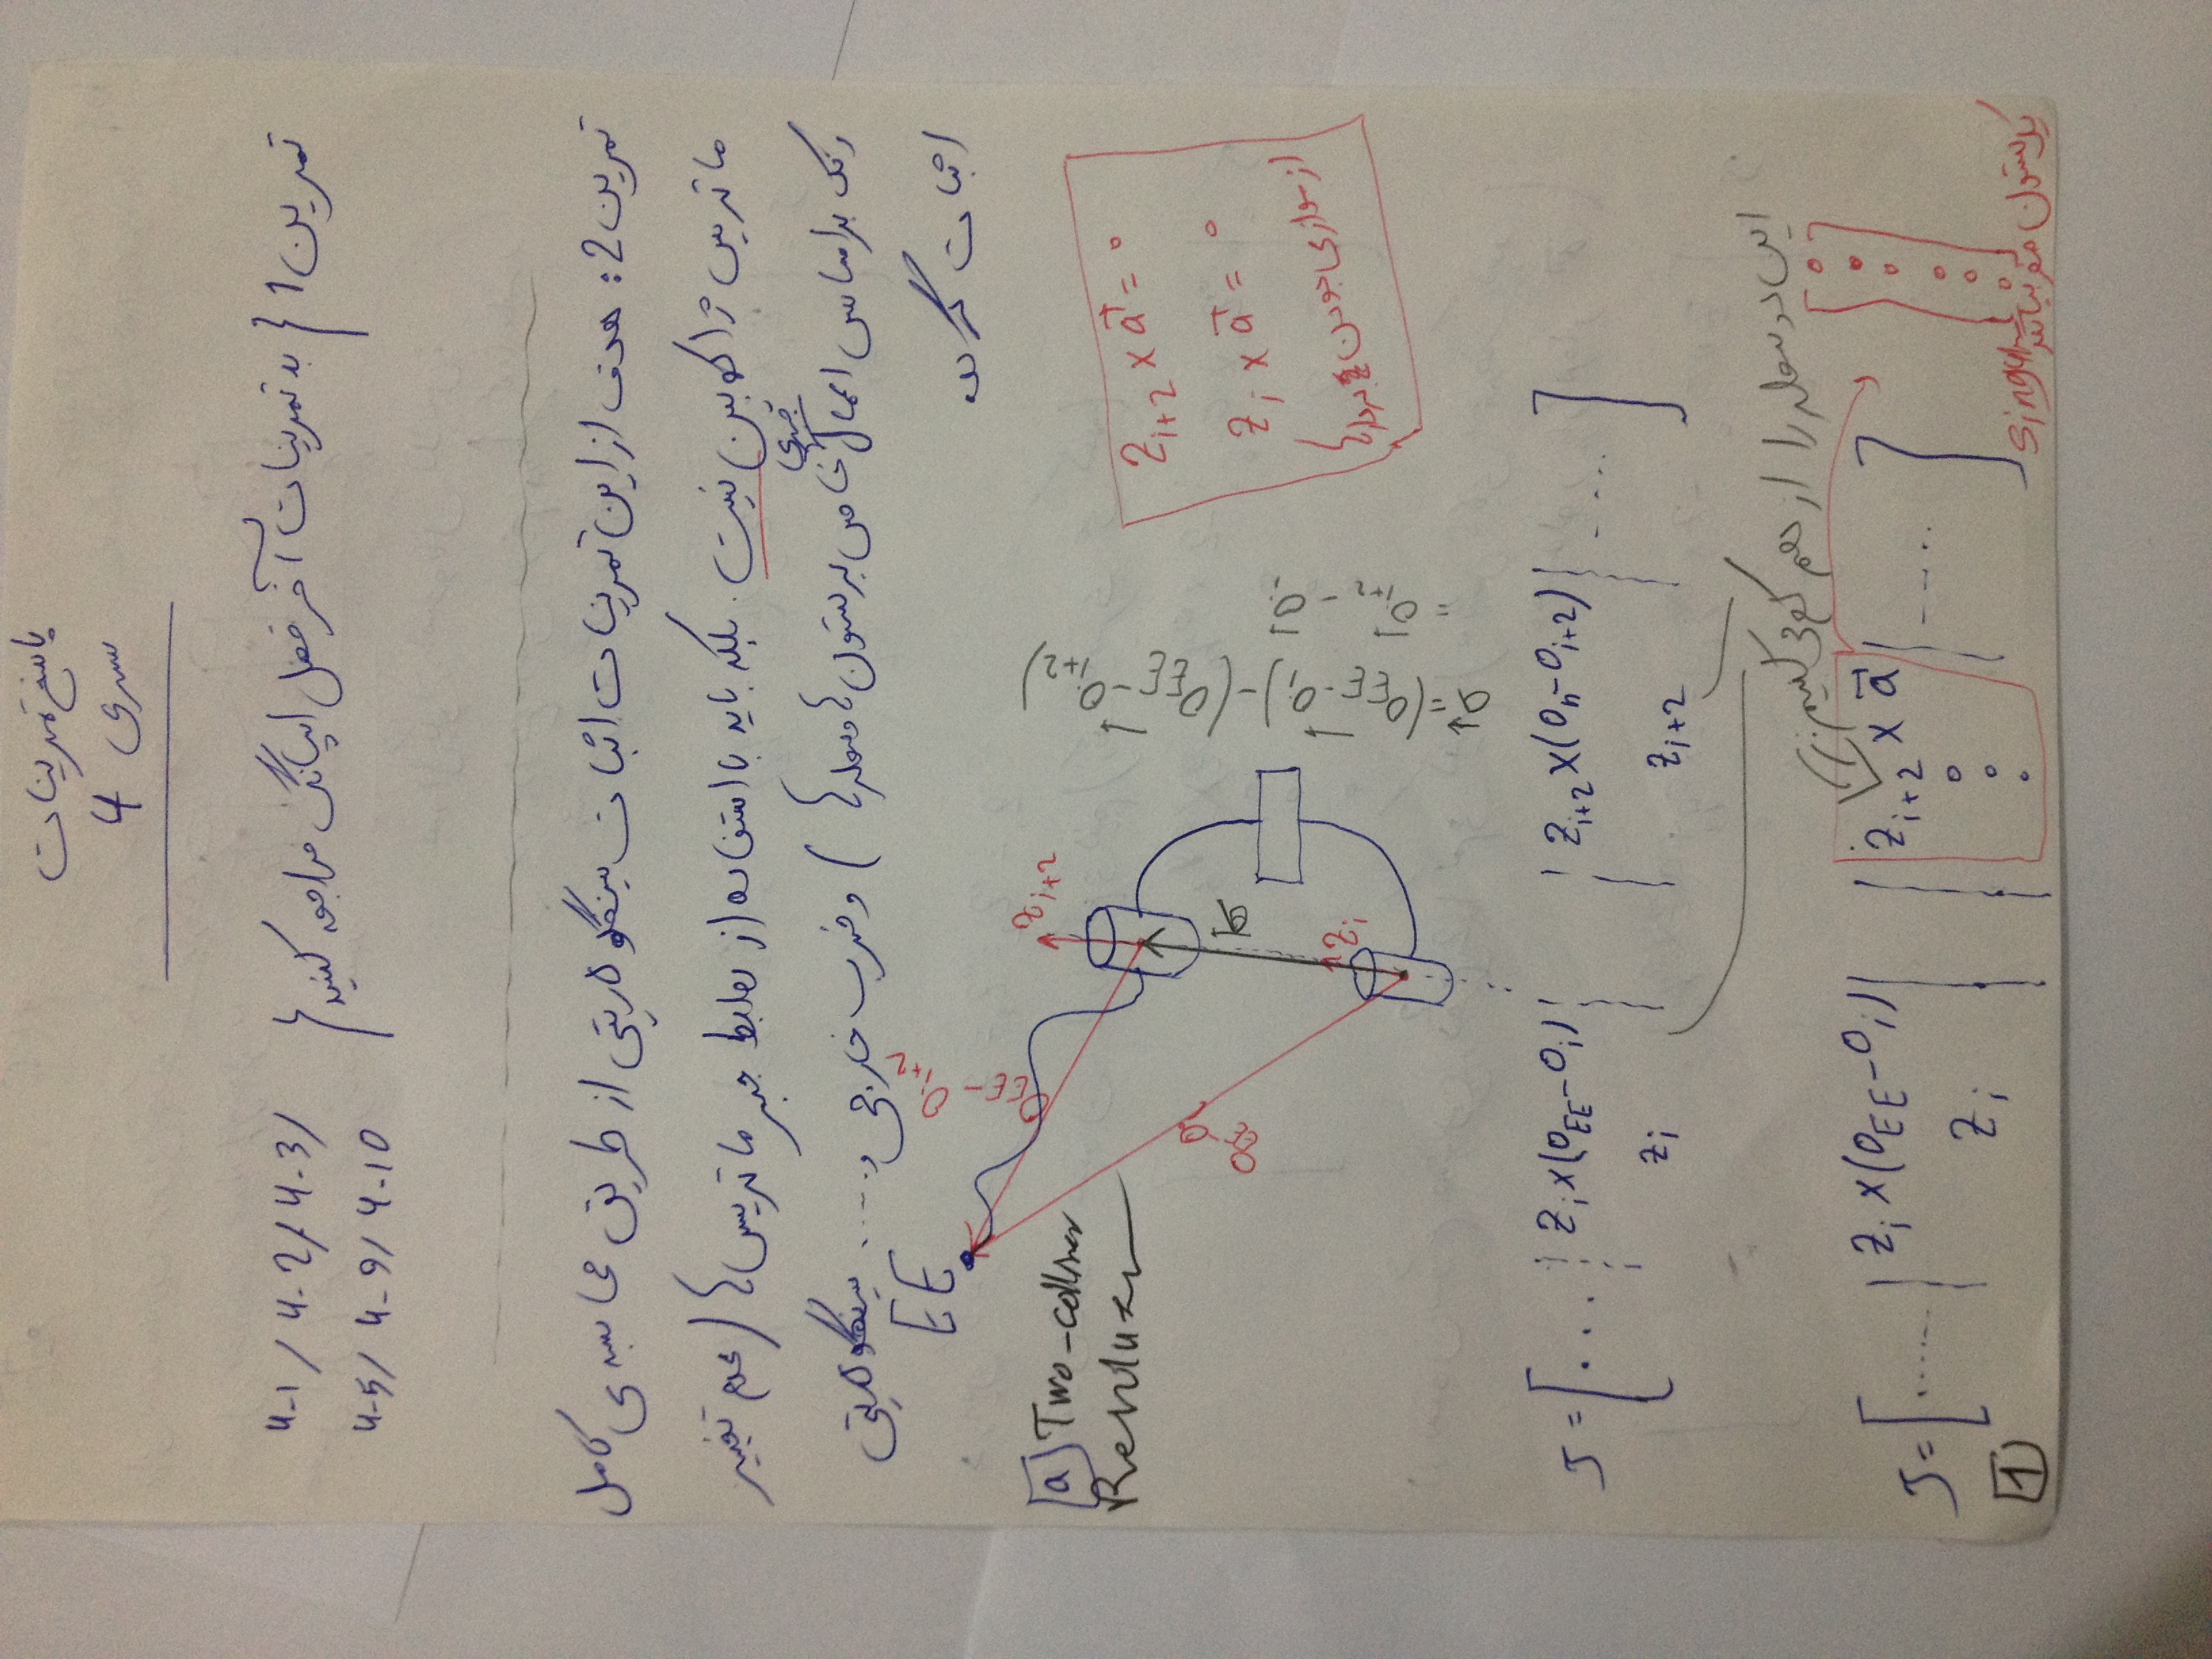 پاسخ تمرینات
سری 4
تمرین 1 { به تمرینات آخر فصل اسپانگ مراجعه کنید }
4-1 / 4-2 / 4-3 /
4-5 / 4-9 / 4-10
تمرین 2: هدف از این تمرینات اثبات سینگولاریتی از طریق محاسبه ی کامل
ماتریس ژاکوبین نیست. بلکه باید با استفاده از روابط جبر ماتریس ها (عدم تغییر
رنک براساس اعمال جبری خاص بر ستون ها و سطرها) و ضرب خارجی و .... سینگولاریتی
اثبات گردد
EE
O_EE - O_{i+2}
Z_{i+2}
[a] Two-collinear
Revolute
O_EE - O_i
a⃗
Z_i
a⃗ = (O_EE - O_i) - (O_EE - O_{i+2})
= O_{i+2} - O_i
Z_{i+2} × a⃗ = 0
Z_i × a⃗ = 0
از موازی بودن بردارها
J = [ ... Z_i × (O_EE - O_i) Z_{i+2} × (O_n - O_{i+2}) .... ]
Z_i Z_{i+2}
این دو سطر را از هم کم می کنیم:
J = [ ...... Z_i × (O_EE - O_i) Z_{i+2} × a⃗ ..... ]
Z_i 0 0 0
[ 0 0 0 0 0 0 ]
یک ستون صفر میباشد Singular
1